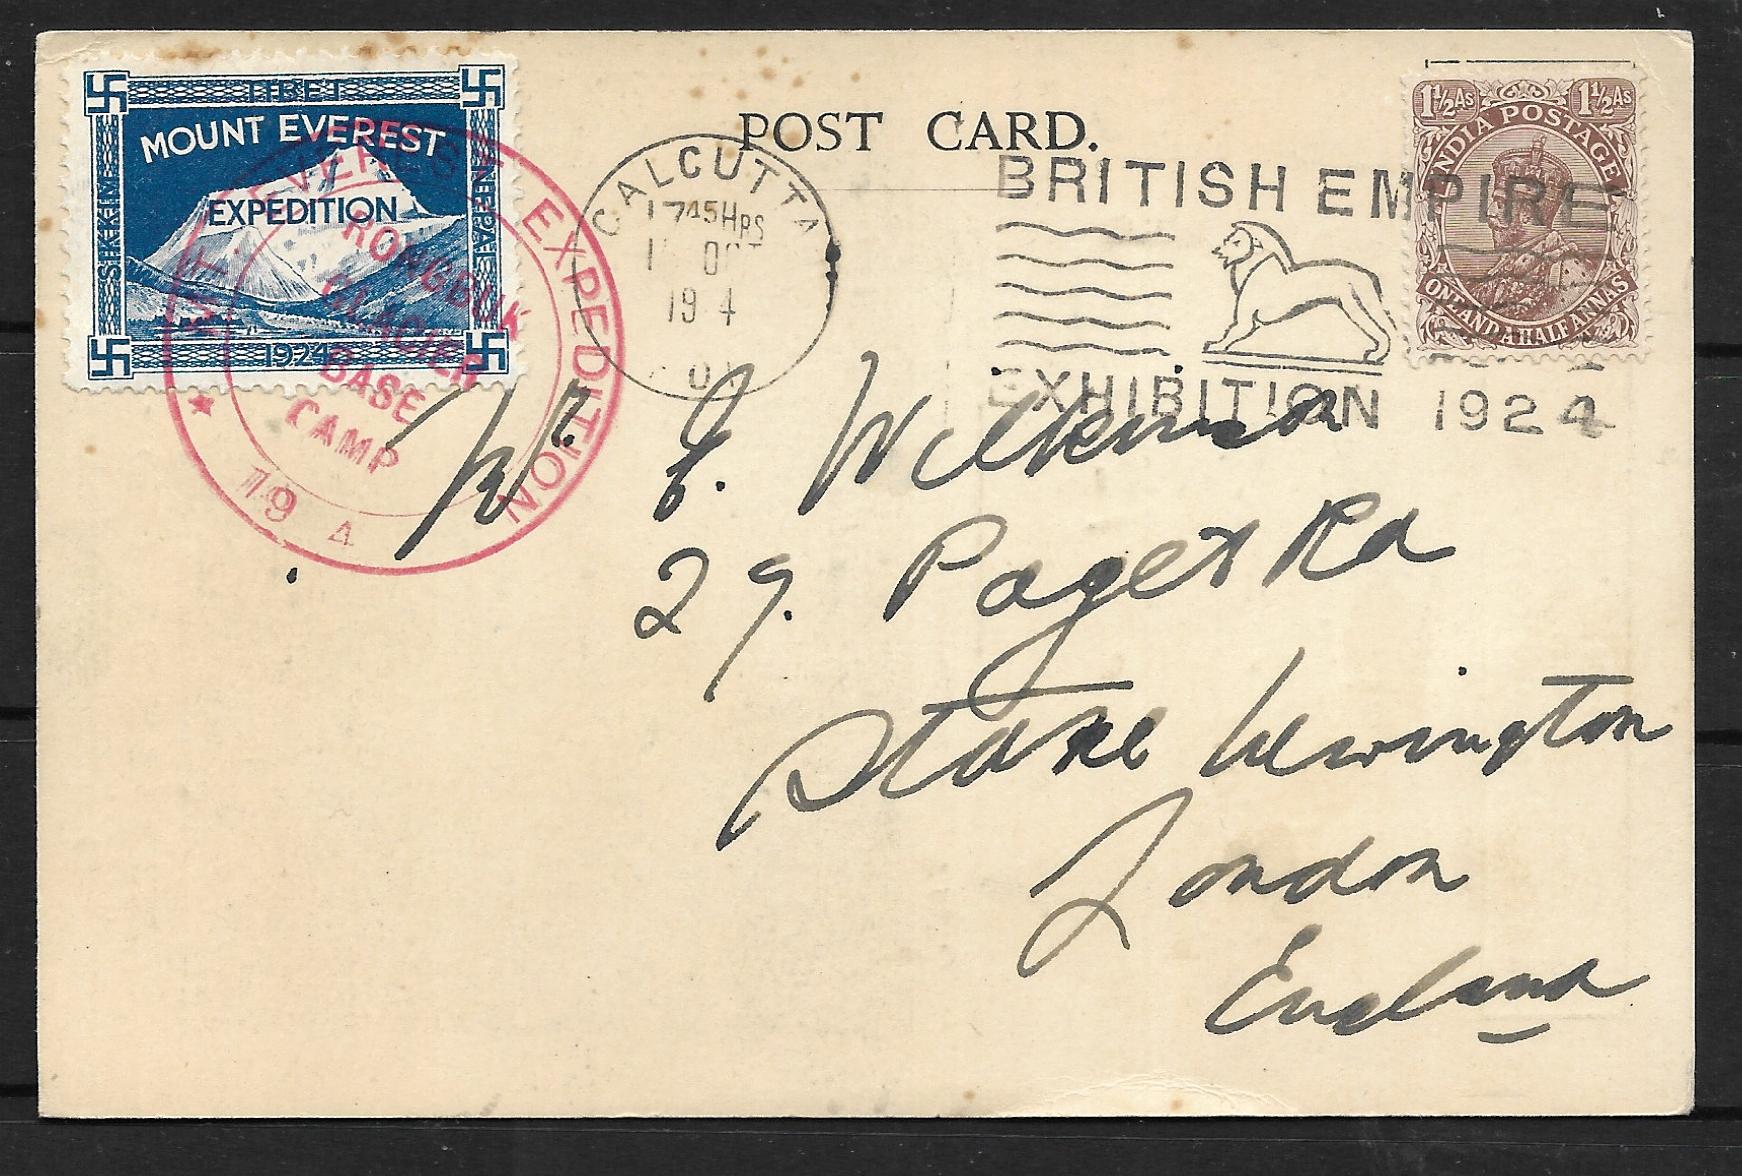 TIBET
MOUNT EVEREST
EXPEDITION
SIKKIM
NEPAL
1924
MT EVEREST EXPEDITION
RONGBUK
GLACIER
BASE
CAMP
19 4
POST CARD.
CALCUTTA
1745HRS
OCT
19 4
BRITISH EMPIRE
EXHIBITION 1924
1½As 1½As
INDIA POSTAGE
ONE AND A HALF ANNAS
Wilkinson
29. Paget Rd
Stoke Newington
London
England